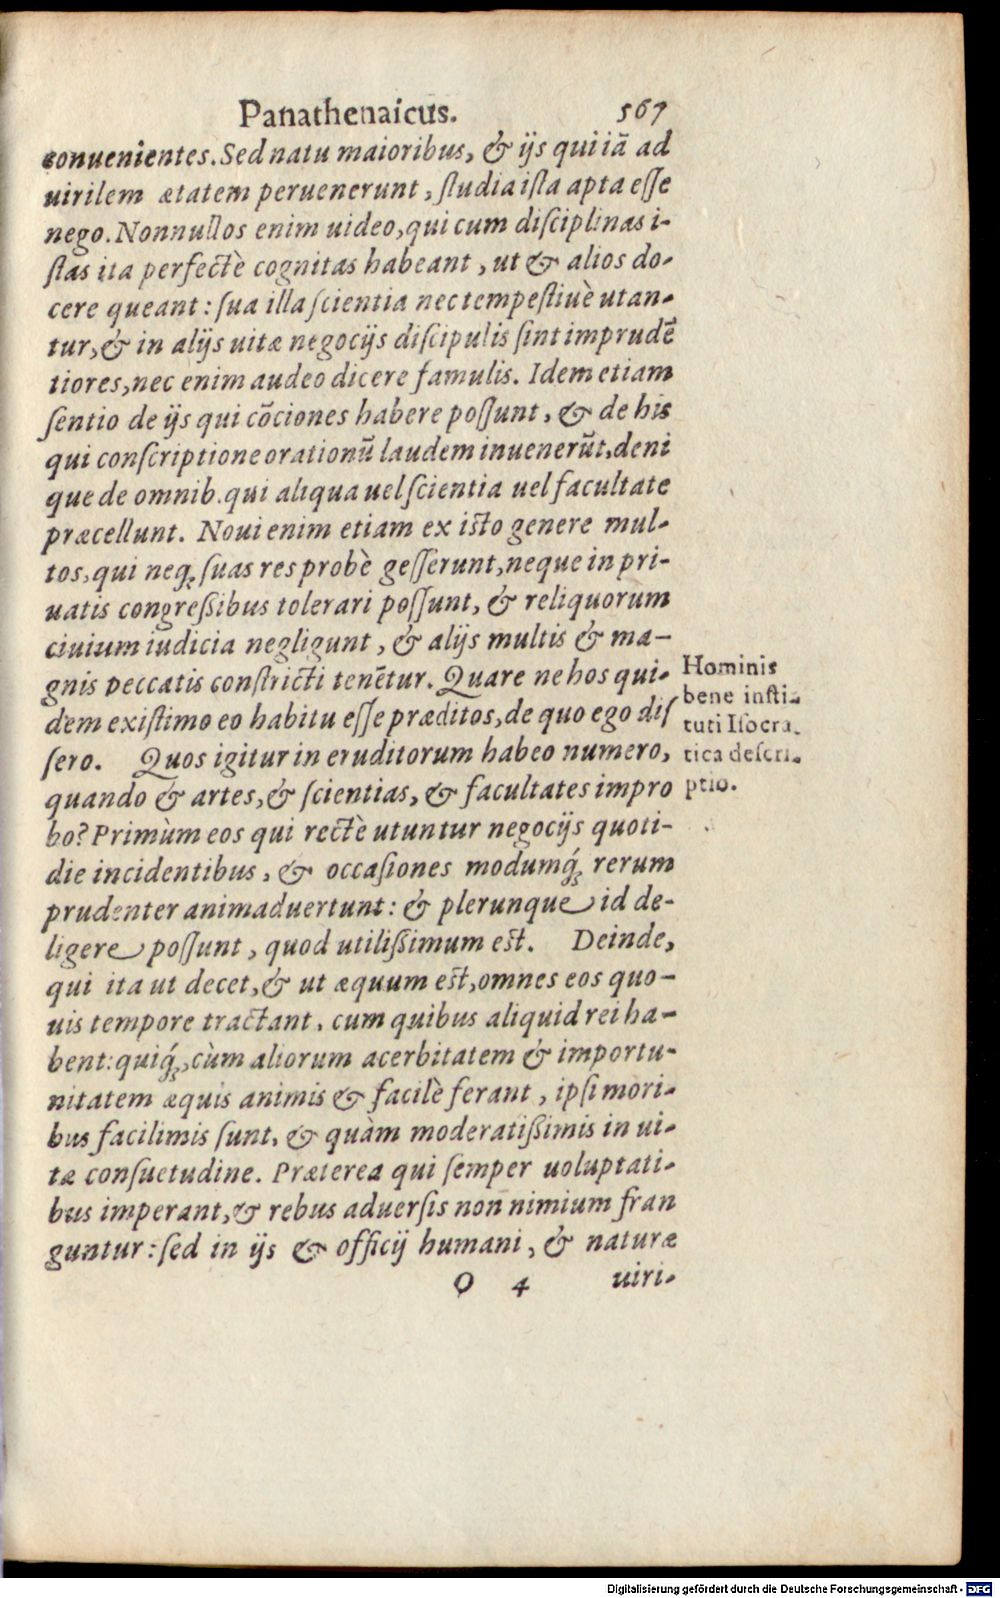 Panathenaicus. 567
conuenientes. Sed natu maioribus, & ijs qui iā ad
uirilem ætatem peruenerunt, ſtudia iſta apta eſſe
nego. Nonnullos enim uideo, qui cum diſciplinas i-
ſtas ita perfectè cognitas habeant, ut & alios do-
cere queant: ſua illa ſcientia nec tempeſtiuè utan-
tur, & in alijs uitæ negocijs diſcipulis ſint imprudē
tiores, nec enim audeo dicere famulis. Idem etiam
ſentio de ijs qui cōciones habere poſſunt, & de his
qui conſcriptione orationū laudem inuenerūt, deni
que de omnib. qui aliqua uel ſcientia uel facultate
præcellunt. Noui enim etiam ex iſto genere mul-
tos, qui neq; ſuas res probè geſſerunt, neque in pri-
uatis congreßibus tolerari poſſunt, & reliquorum
ciuium iudicia negligunt, & alijs multis & ma-
gnis peccatis conſtricti tenētur. Quare ne hos qui-
dem exiſtimo eo habitu eſſe præditos, de quo ego diſ
ſero. Quos igitur in eruditorum habeo numero,
quando & artes, & ſcientias, & facultates impro
bo? Primùm eos qui rectè utuntur negocijs quoti-
die incidentibus, & occaſiones modumq́; rerum
prudenter animaduertunt: & plerunque id de-
ligere poſſunt, quod utilißimum eſt. Deinde,
qui ita ut decet, & ut æquum eſt, omnes eos quo-
uis tempore tractant, cum quibus aliquid rei ha-
bent: quiq́;, cùm aliorum acerbitatem & importu-
nitatem æquis animis & facilè ferant, ipſi mori-
bus facilimis ſunt, & quàm moderatißimis in ui-
tæ conſuetudine. Præterea qui ſemper uoluptati-
bus imperant, & rebus aduerſis non nimium fran
guntur: ſed in ijs & officij humani, & naturæ
O 4 uiri-
Hominis
bene inſti-
tuti Iſocra-
tica deſcri-
ptio.
Digitalisierung gefördert durch die Deutsche Forschungsgemeinschaft - DFG